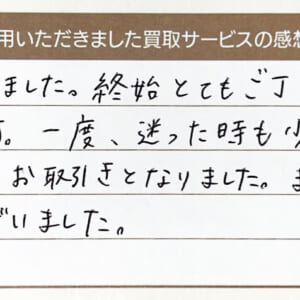 用いただきました買取サービスの感想
ました。終始とてもご丁
。一度、迷った時も
お取引きとなりました。ま
いました。